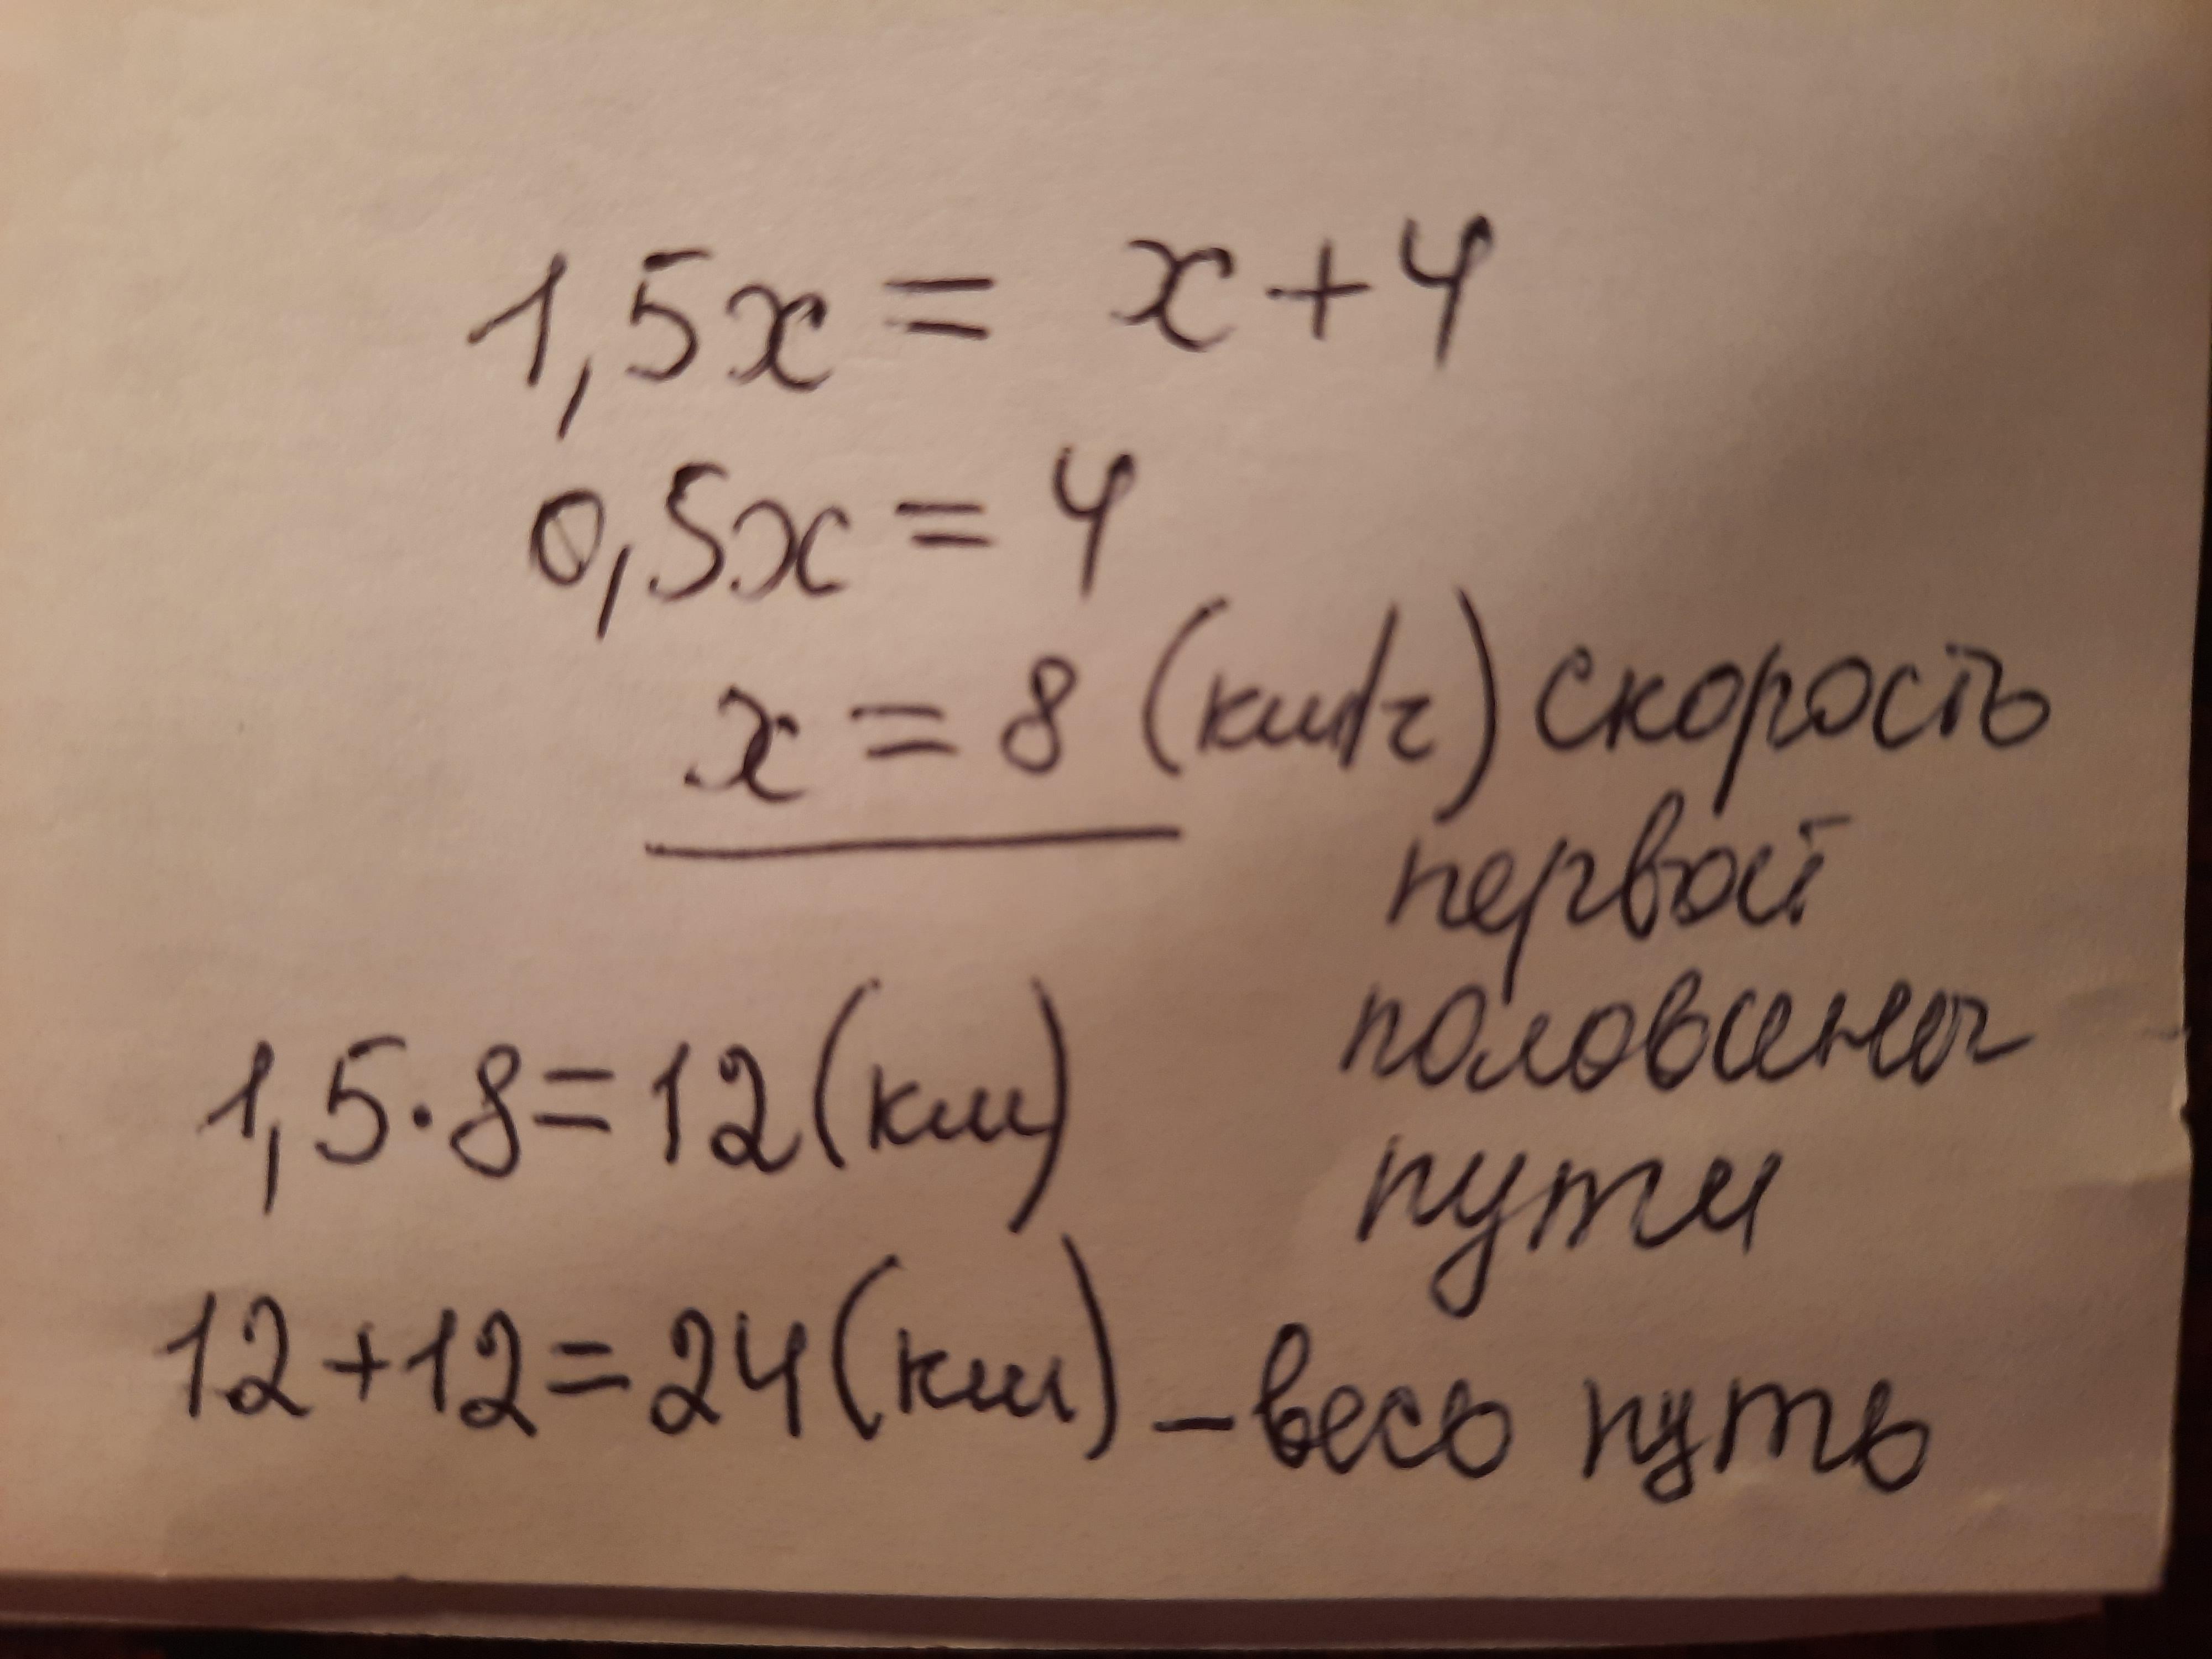 1,5x = x+4
0,5x = 4
x = 8 (км/ч) скорость
первой
половины
пути
1,5·8=12(км)
12+12=24(км) – весь путь